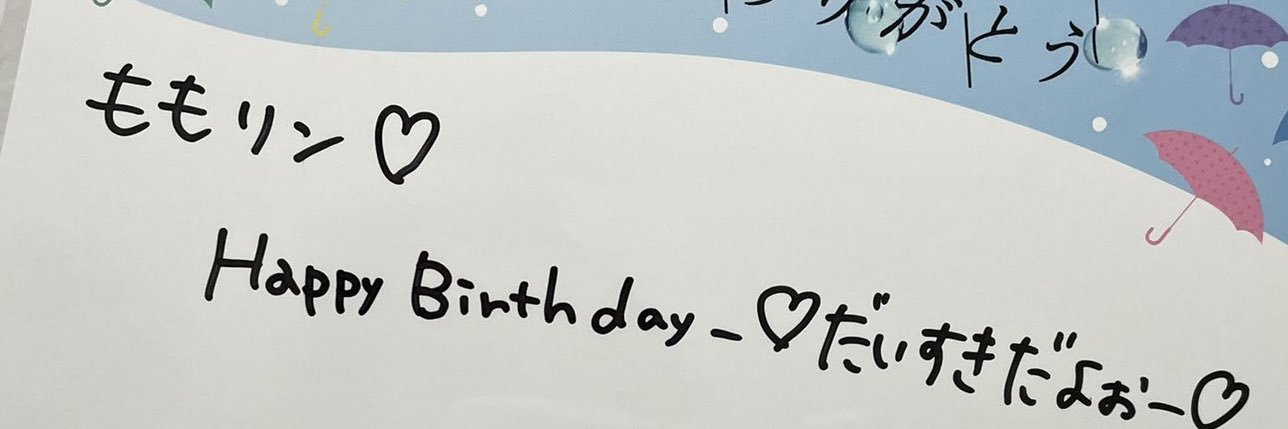 りがとう
ももリン♡
Happy Birthday-♡だいすきだよぉー♡